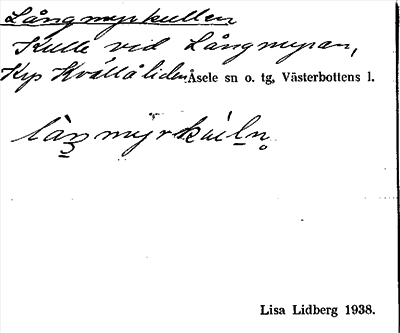 Långmyrkullen
Kulle vid Långmyran,
Kyp Kvällåliden Åsele sn o. tg, Västerbottens l.
Lisa Lidberg 1938.